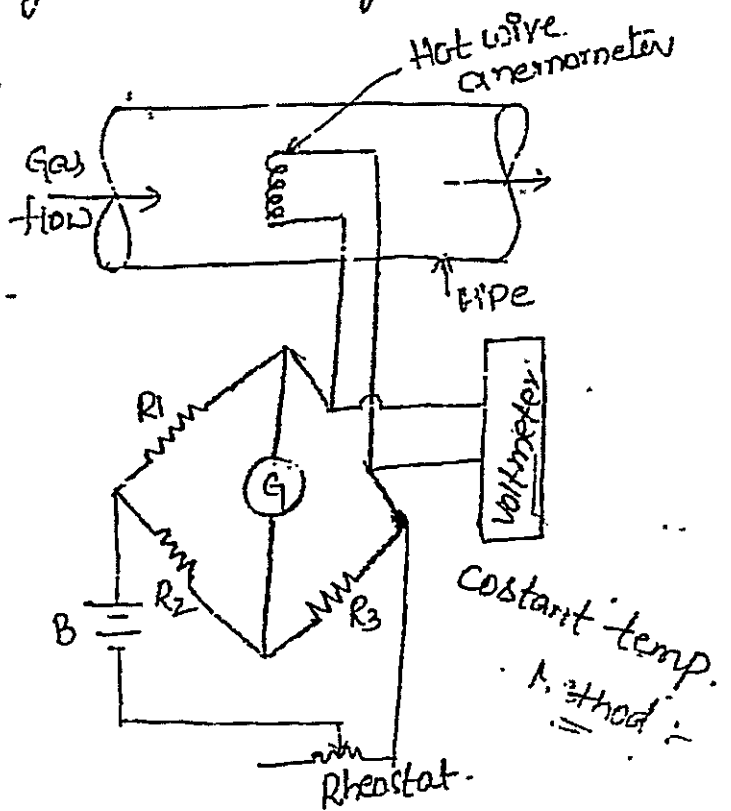 Hot wire.
anemometer
Gas
flow
Pipe
R1
G
Voltmeter
R2
R3
B
Costant temp.
Method :-
Rheostat.